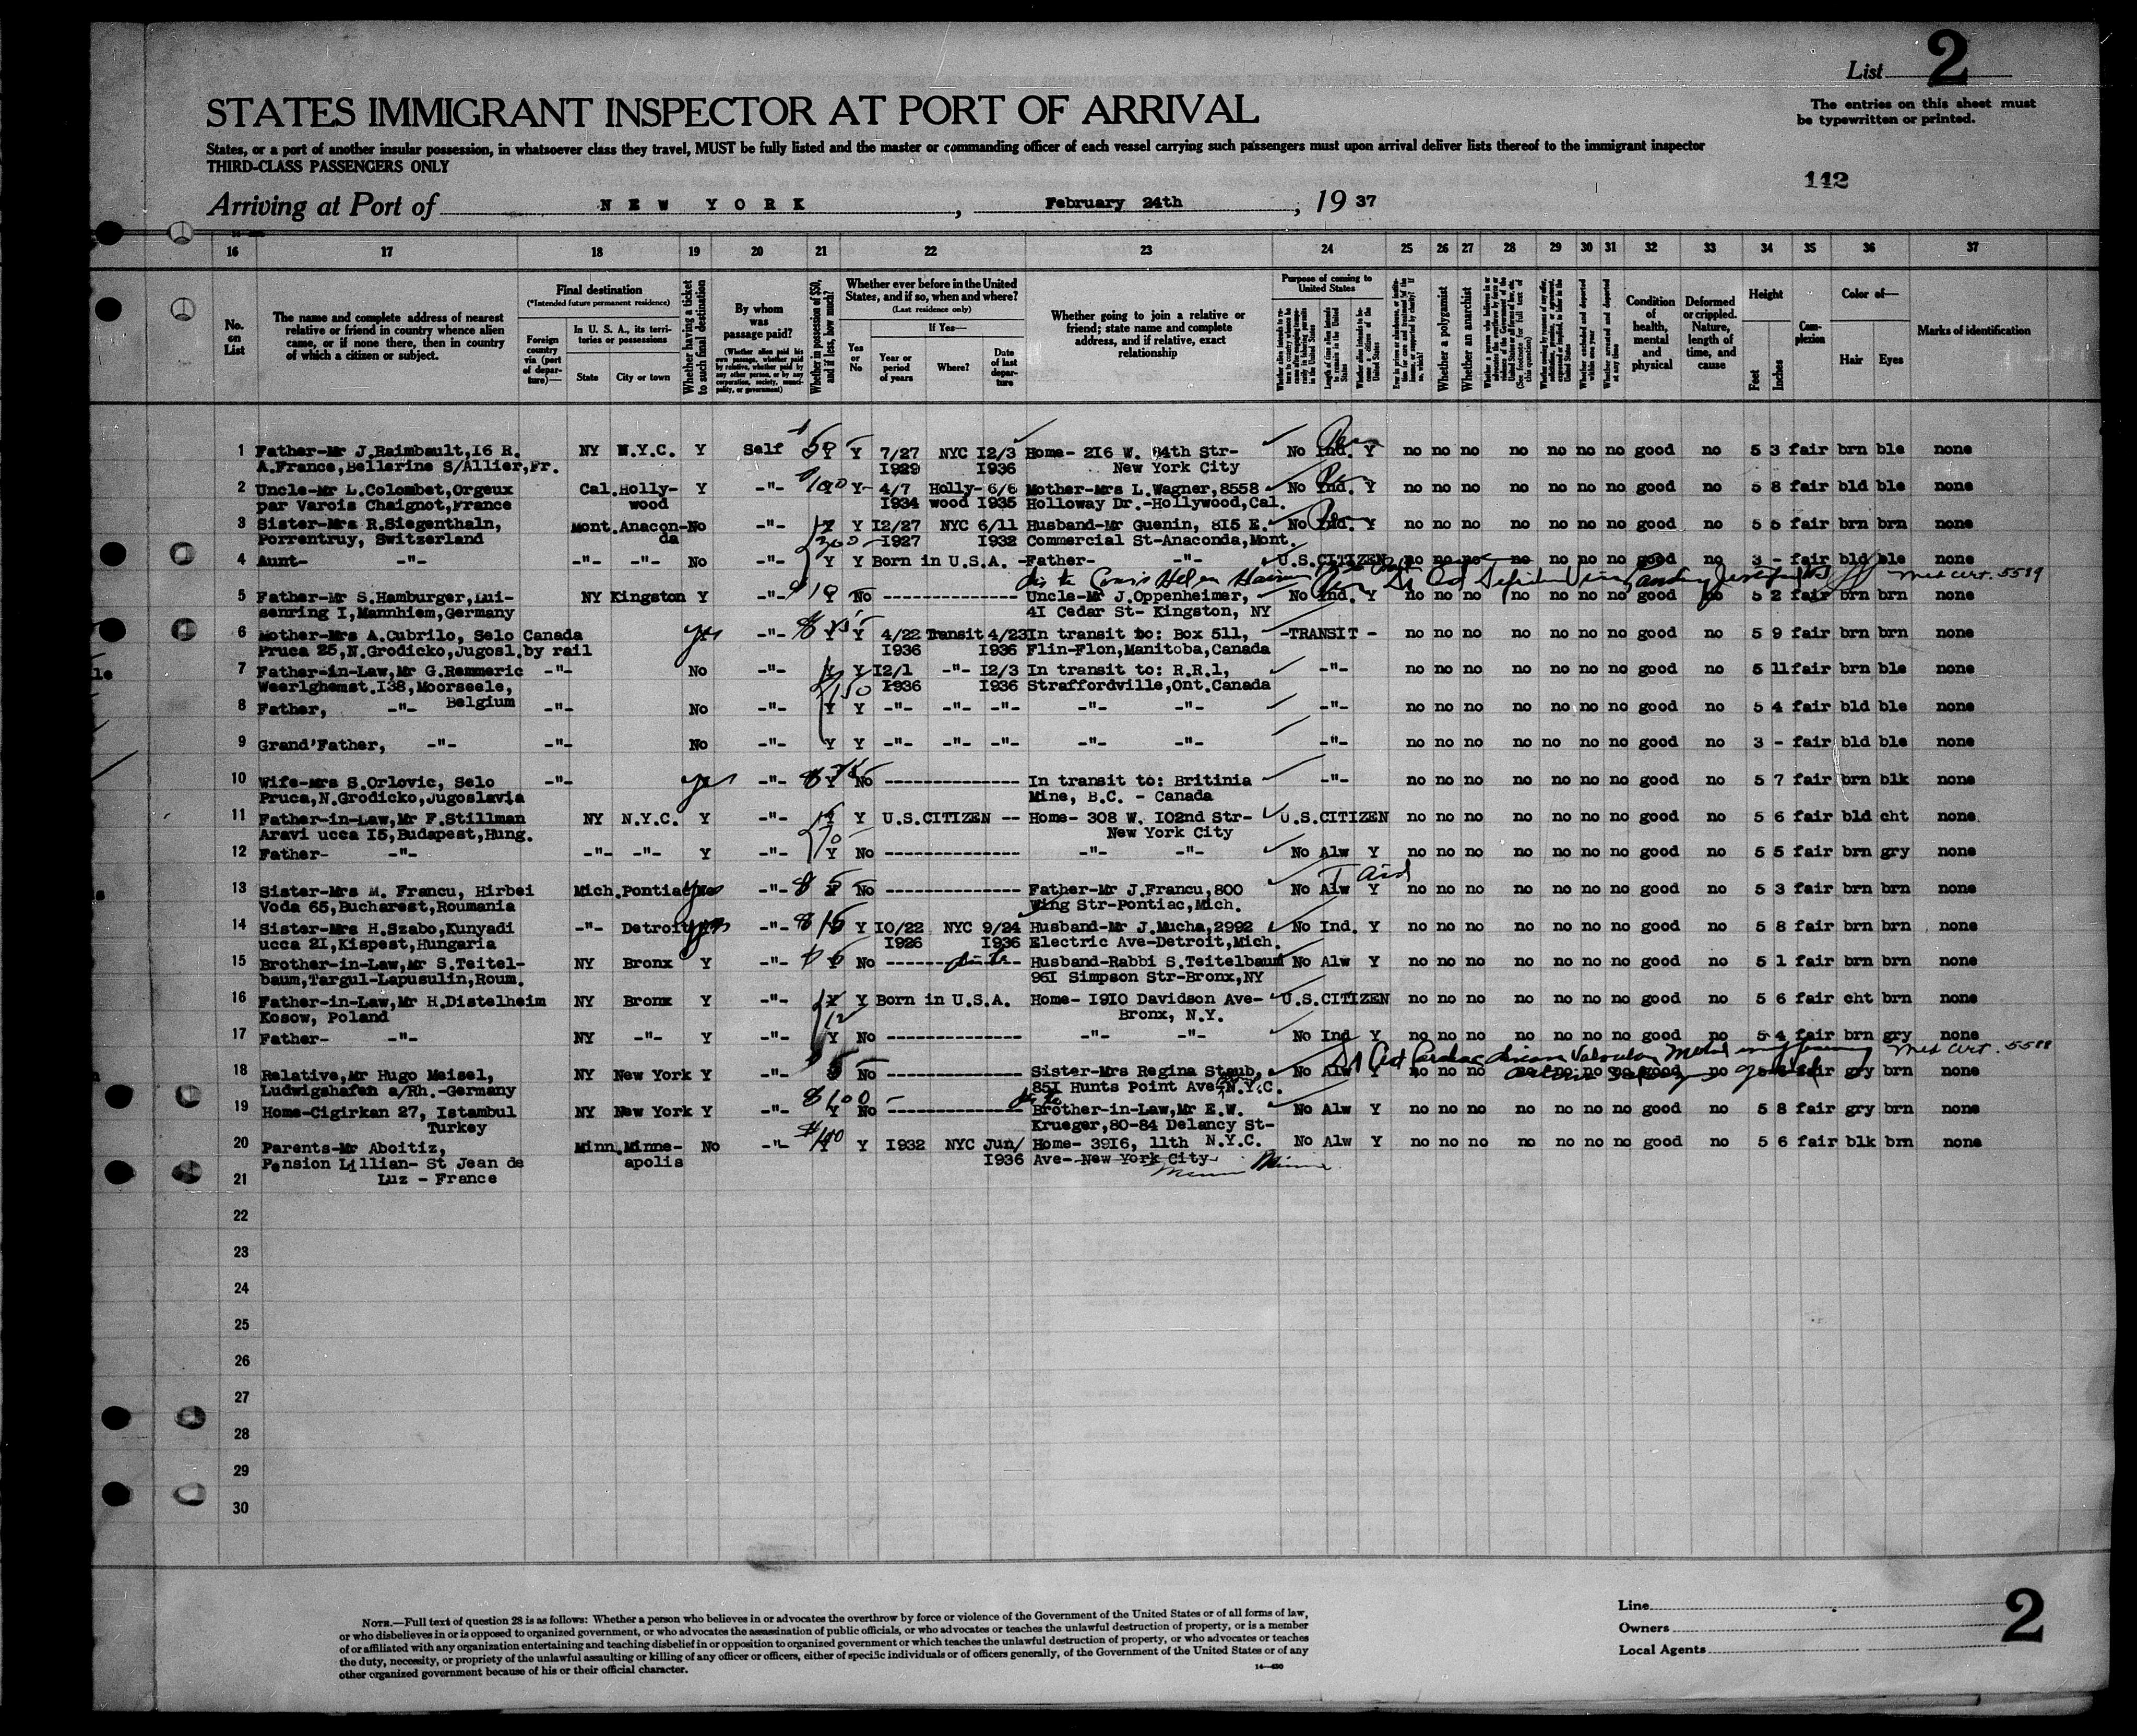 List 2
STATES IMMIGRANT INSPECTOR AT PORT OF ARRIVAL
The entries on this sheet must
be typewritten or printed.
States, or a port of another insular possession, in whatsoever class they travel, MUST be fully listed and the master or commanding officer of each vessel carrying such passengers must upon arrival deliver lists thereof to the immigrant inspector
THIRD-CLASS PASSENGERS ONLY
142
Arriving at Port of NEW YORK, February 24th, 1937
16 17 18 19 20 21 22 23 24 25 26 27 28 29 30 31 32 33 34 35 36 37
No. on List
The name and complete address of nearest relative or friend in country whence alien came, or if none there, then in country of which a citizen or subject.
Final destination
(*Intended future permanent residence)
Foreign country via (port of departure)—
In U. S. A., its territories or possessions
State
City or town
Whether having a ticket to such final destination
By whom was passage paid?
(Whether alien paid his own passage, whether paid by relative, whether paid by any other person, or by any corporation, society, municipality, or government)
Whether in possession of $50, and if less, how much?
Whether ever before in the United States, and if so, when and where?
(Last residence only)
Yes or No
If Yes—
Year or period of years
Where?
Date of last departure
Whether going to join a relative or friend; state name and complete address, and if relative, exact relationship
Purpose of coming to United States
Length of time alien intends to remain in the United States
Whether a polygamist
Whether an anarchist
(See footnote for full text of this question)
Whether arrested and deported at any time
Condition of health, mental and physical
Deformed or crippled. Nature, length of time, and cause
Height
Feet
Inches
Complexion
Color of—
Hair
Eyes
Marks of identification
1 Father-Mr J.Raimbault,16 R. NY N.Y.C. Y Self Y Y 7/27 NYC 12/3 Home- 216 W. 84th Str- No Ind. Y no no no no no no no good no 5 3 fair brn ble none
A.France,Bellerine S/Allier,Fr. 1929 1936 New York City
2 Uncle-Mr L.Colombet,Orgeux Cal. Holly- Y -"- 100 Y 4/7 Holly- 6/6 Mother-Mrs L.Wagner,8558 No Ind. Y no no no no no no no good no 5 8 fair bld ble none
par Varois Chaignot,France wood 1934 wood 1935 Holloway Dr.-Hollywood,Cal.
3 Sister-Mrs R.Siegenthaln, Mont. Anacon- No -"- Y Y 12/27 NYC 6/11 Husband-Mr Guenin, 815 E. No Ind. Y no no no no no no no good no 5 5 fair brn brn none
Porrentruy, Switzerland da 300 1927 1932 Commercial St-Anaconda,Mont.
4 Aunt- -"- -"- -"- No -"- Y Y Born in U.S.A. -Father- -"- U.S.CITIZEN no no no no no no no good no 3 - fair bld ble none
Med cert. 5589
5 Father-Mr S.Hamburger,Lui- NY Kingston Y -"- 10 No --------------- Uncle-Mr J.Oppenheimer, No Ind. Y no no no no no no no good no 5 2 fair brn brn none
senring I,Mannhiem,Germany 41 Cedar St- Kingston, NY
6 Mother-Mrs A.Cubrilo, Selo Canada yes -"- Y Y 4/22 Transit 4/23 In transit to: Box 511, -TRANSIT - no no no no no no no good no 5 9 fair brn brn none
Pruca 25,N.Grodicko,Jugosl. by rail 1936 1936 Flin-Flon,Manitoba,Canada
7 Father-in-Law,Mr G.Remmeric -"- No -"- Y Y 12/1 -"- 12/3 In transit to: R.R.1, -"- no no no no no no no good no 5 11 fair brn ble none
Weerlghemst.138,Moorseele, 150 1936 1936 Straffordville,Ont.Canada
Belgium
8 Father, -"- -"- No -"- Y Y -"- -"- -"- -"- -"- -"- no no no no no no no good no 5 4 fair bld ble none
9 Grand'Father, -"- -"- No -"- Y Y -"- -"- -"- -"- -"- -"- no no no no no no no good no 3 - fair bld ble none
10 Wife-mrs S.Orlovic, Selo -"- yes -"- No --------------- In transit to: Britinia -"- no no no no no no no good no 5 7 fair brn blk none
Pruca,N.Grodicko,Jugoslavia Mine, B.C. - Canada
11 Father-in-Law,Mr F.Stillman NY N.Y.C. Y -"- Y Y U.S.CITIZEN -- Home- 308 W. 102nd Str- U.S.CITIZEN no no no no no no no good no 5 6 fair bld cht none
Aravi ucca 15,Budapest,Hung. 70 New York City
12 Father- -"- -"- -"- Y -"- Y No --------------- -"- -"- No Alw Y no no no no no no no good no 5 5 fair brn gry none
13 Sister-Mrs M. Francu, Hirbei Mich. Pontiac yes -"- $ 5 No --------------- Father-Mr J.Francu,800 No Alw Y no no no no no no no good no 5 3 fair brn brn none
Voda 65,Bucharest,Roumania Wing Str-Pontiac,Mich.
14 Sister-Mrs H.Szabo,Kunyadi -"- Detroit yes -"- $ 15 Y 10/22 NYC 9/24 Husband-Mr J.Mucha,2992 No Ind. Y no no no no no no no good no 5 8 fair brn brn none
ucca 21,Kispest,Hungaria 1926 1936 Electric Ave-Detroit,Mich.
15 Brother-in-Law,Mr S.Teitel- NY Bronx Y -"- No --------------- Husband-Rabbi S.Teitelbaum No Alw Y no no no no no no no good no 5 1 fair brn brn none
baum,Targul-Lapusulin,Roum. 961 Simpson Str-Bronx,NY
16 Father-in-Law,Mr H.Distelheim NY Bronx Y -"- Y Y Born in U.S.A. Home- 1910 Davidson Ave- U.S.CITIZEN no no no no no no no good no 5 6 fair cht brn none
Kosow, Poland 12 Bronx, N.Y.
17 Father- -"- NY -"- Y -"- Y No --------------- -"- -"- No Ind Y no no no no no no no good no 5 4 fair brn gry none
Med cert. 5588
18 Relative,Mr Hugo Meisel, NY New York Y -"- 5 No --------------- Sister-Mrs Regina Staub, No Alw Y no no no no no no no good no fair gry brn none
Ludwigshafen a/Rh.-Germany 851 Hunts Point Ave-N.Y.C.
19 Home-Cigirkan 27, Istambul NY New York Y -"- $100 Y No --------------- Brother-in-Law,Mr E.W. No Alw Y no no no no no no no good no 5 8 fair gry brn none
Turkey Krueger,80-84 Delancy St-
20 Parents-Mr Aboitiz, Minn. Minne- No -"- Y Y 1932 NYC Jun/ Home- 3916, 11th N.Y.C. No Alw Y no no no no no no no good no 5 6 fair blk brn none
Pension Lillian- St Jean de apolis 1936 Ave- New York City Minn
21 Luz - France
22
23
24
25
26
27
28
29
30
NOTE.—Full text of question 28 is as follows: Whether a person who believes in or advocates the overthrow by force or violence of the Government of the United States or of all forms of law,
or who disbelieves in or is opposed to organized government, or who advocates the assassination of public officials, or who advocates or teaches the unlawful destruction of property, or is a member
of or affiliated with any organization entertaining and teaching disbelief in or opposition to organized government or which teaches the unlawful destruction of property, or who advocates or teaches
the duty, necessity, or propriety of the unlawful assaulting or killing of any officer or officers, either of specific individuals or of officers generally, of the Government of the United States or of any
other organized government because of his or their official character.
14—430
Line
Owners
Local Agents
2